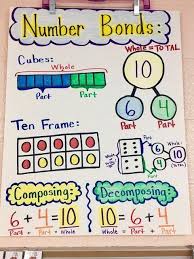 Number Bonds:
Cubes:
Whole
Part Part
Whole = TOTAL
10
6 4
Part Part
Ten Frame:
Part
Part
10
Whole
Composing:
6 + 4 = 10
Part + Part = Whole
Decomposing:
10 = 6 + 4
Whole = Part + Part